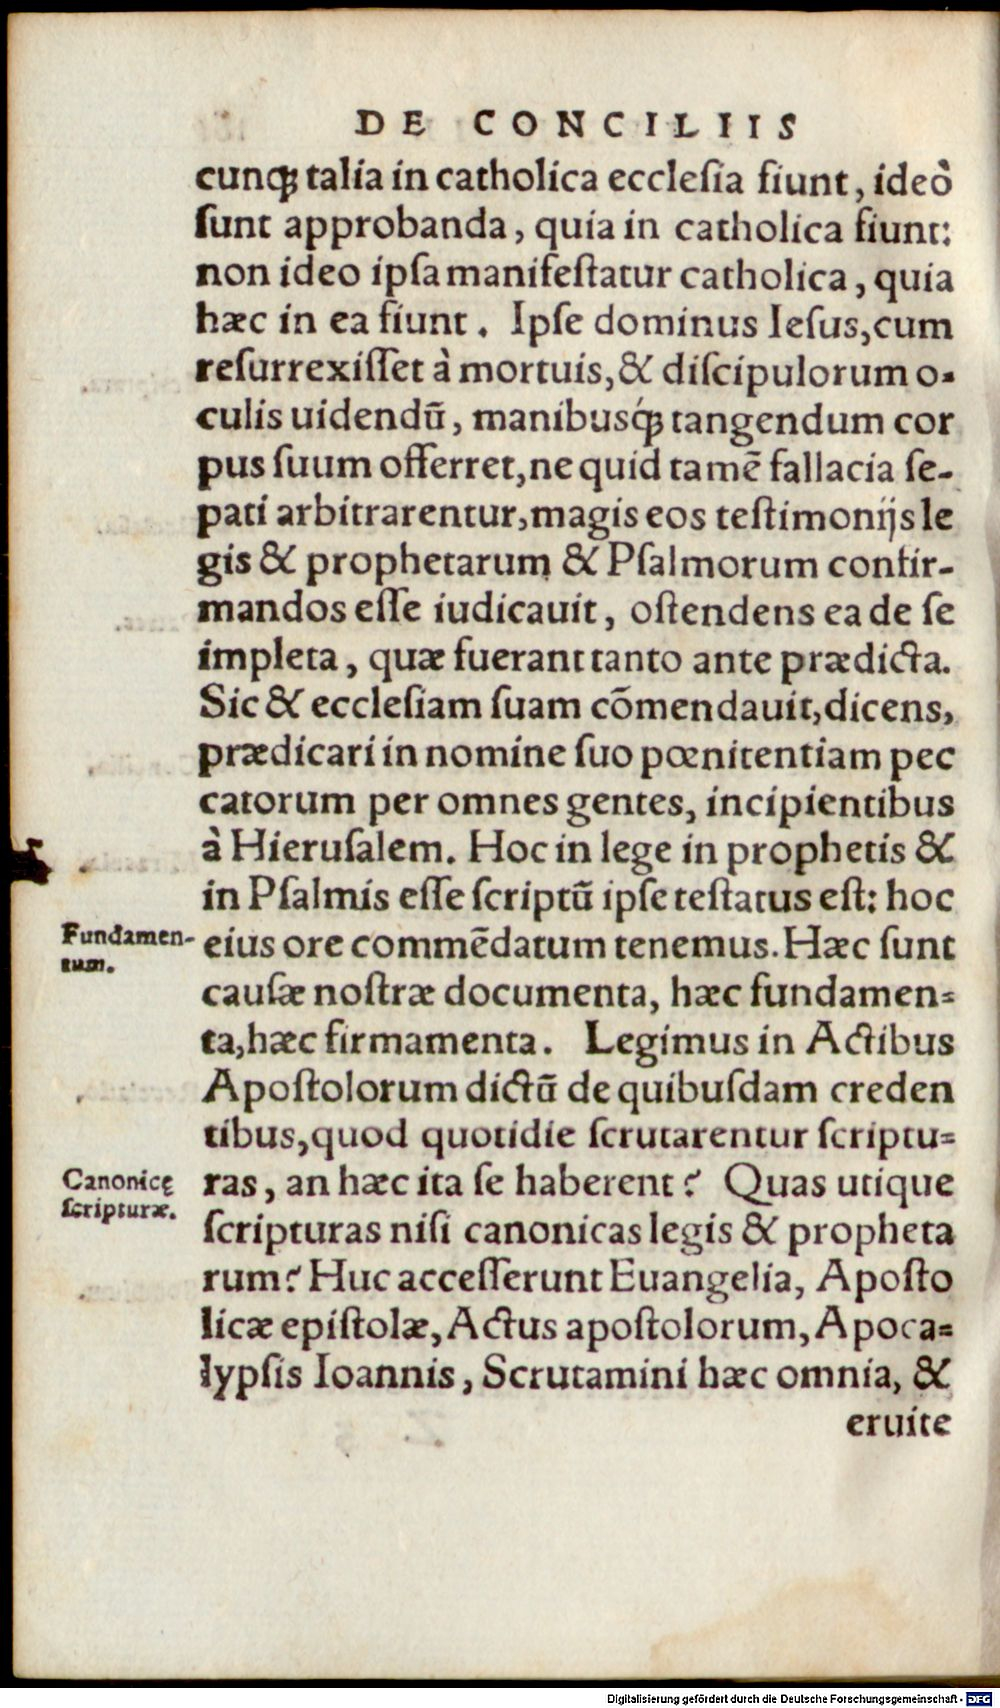 DE CONCILIIS
cunqꝫ talia in catholica ecclesia fiunt, ideò
ſunt approbanda, quia in catholica fiunt:
non ideo ipſa manifeſtatur catholica, quia
hæc in ea fiunt. Ipſe dominus Ieſus, cum
reſurrexiſſet à mortuis, & diſcipulorum o-
culis uidendũ, manibusq́ꝫ tangendum cor
pus ſuum offerret, ne quid tamẽ fallacia ſe-
pati arbitrarentur, magis eos teſtimonijs le
gis & prophetarum & Pſalmorum confir-
mandos eſſe iudicauit, oſtendens ea de ſe
impleta, quæ fuerant tanto ante prædicta.
Sic & eccleſiam ſuam cõmendauit, dicens,
prædicari in nomine ſuo pœnitentiam pec
catorum per omnes gentes, incipientibus
à Hieruſalem. Hoc in lege in prophetis &
in Pſalmis eſſe ſcriptũ ipſe teſtatus eſt: hoc
Fundamen-
tum.
eius ore commẽdatum tenemus. Hæc ſunt
cauſæ noſtræ documenta, hæc fundamen-
ta, hæc firmamenta. Legimus in Actibus
Apoſtolorum dictũ de quibuſdam creden
tibus, quod quotidie ſcrutarentur ſcriptu-
Canonicę
ſcripturæ.
ras, an hæc ita ſe haberent? Quas utique
ſcripturas niſi canonicas legis & propheta
rum? Huc acceſſerunt Euangelia, Apoſto
licæ epiſtolæ, Actus apoſtolorum, Apoca-
lypſis Ioannis, Scrutamini hæc omnia, &
eruite
Digitalisierung gefördert durch die Deutsche Forschungsgemeinschaft - DFG